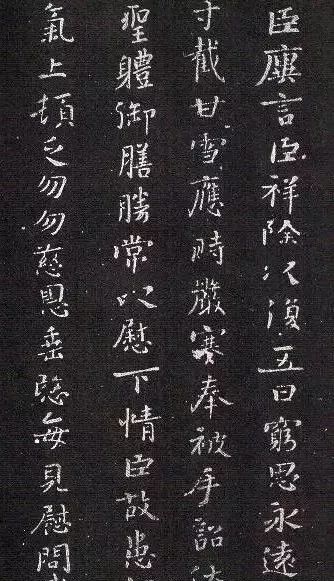 臣廙言臣祥除以復五日窮思永遠
寸截甘雪應時嚴寒奉被手詔
聖體御膳勝常以慰下情臣故患
氣上頓乏勿勿慈恩垂愍每見慰問